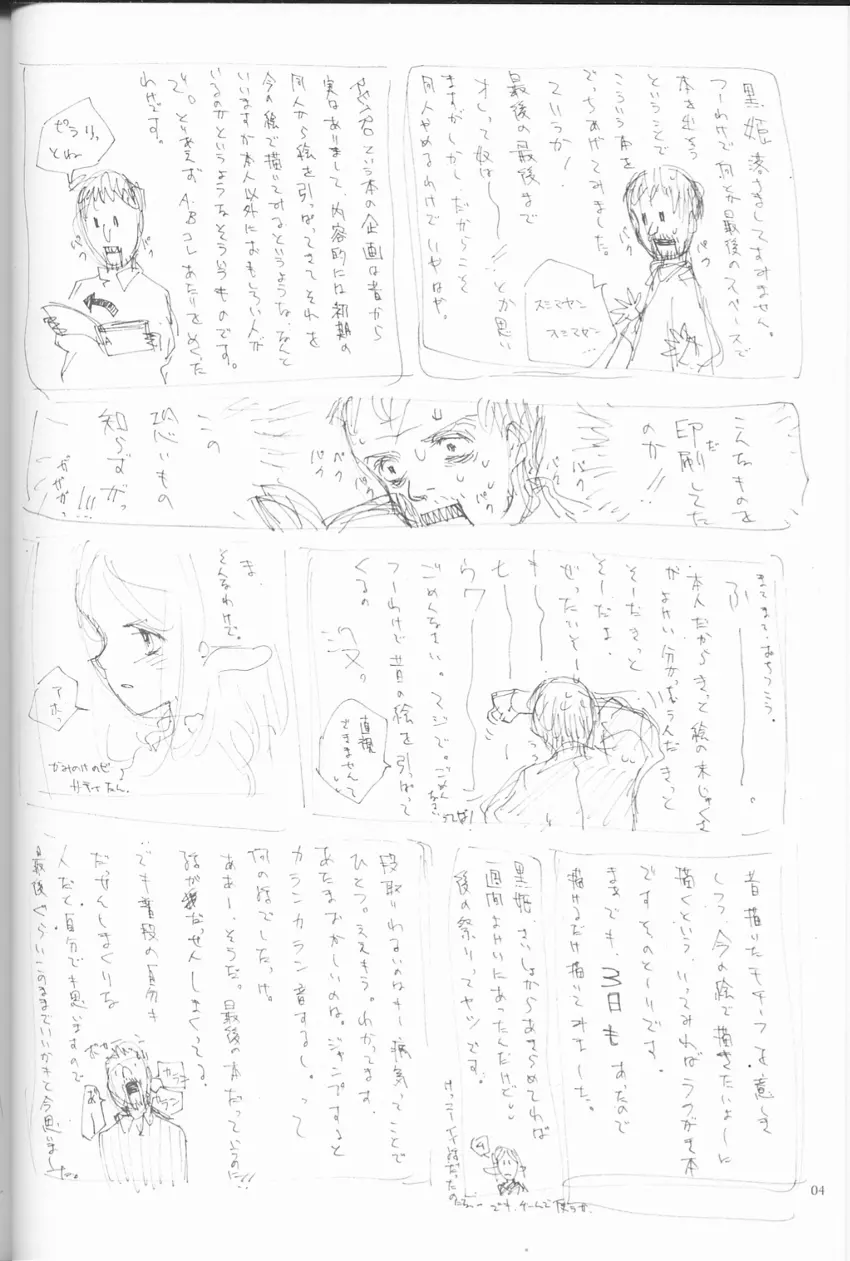 黒姫落としましてすみません。
つーわけで何とか最後のスペースで
本を出そう
ということで
こういう本を
でっちあげてみました。
ていうか！
最後の最後まで
オレって奴は――!! とか思い
ますがしかし、だからこそ
同人やめるわけで いやはや。
スミマセン
スミマセン…
パク
パク
という本の企画は昔から
実はありまして、内容的には初期の
同人から絵を引っぱってきてそれを
今の絵で描いてみるというような、なんと
いいますか本人以外におもしろい人が
いるのかというようなそういうものです。
で。とりあえず A.Bコレあたりをめくった
わけです。
ピラリっ
とね
パク
パク
A
こんなものを
印刷してた
だ
のか!!
パク
パク
パク
パク
この
恥じいもの
知らずがっ
!!!
まてまて、おちつこう。
ふ―――。
本人だからきっと絵の未じゅくさ
がよけい分かっちゃうんだ きっと
そーだきっと
そーだよ、
ぜったいそー
ごめんなさい。マジで。ごめんなさい
つーわけで昔の絵を引っぱって
くるの
没っ
直視
できませんて
ま、
そんなわけで。
アホっ
昔描いたモチーフを意しき
しつつ、今の絵で描きたいよーに
描くという、いってみればらくがき本
です。そのとーりです。
まあでも、3日もあったので
描けるだけ描いてみました。
黒姫、さいしょからあきらめてれば
一週間よけいにあったんだけど。
後の祭りってヤツです。
段取りわるいのはもー病気ってことで
ひとつ。ええもう。わかってます。
あたまおかしいのは。ジャンプすると
カランカラン音するし。って
何の話でしたっけ。
ああー、そうだ。最後の本だっていうのに!!
話がだっせんしまくってる。
でも普段の自分も
だっせんしまくりな
人だと自分でも思いますので
最後ぐらいこのままでいいかもと今思いました。
カラン
カラン
04